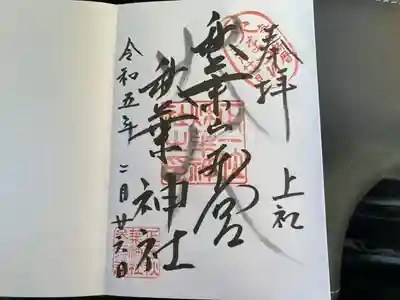 奉拝
上社
秋葉山本宮
秋葉神社
令和五年
二月廿六日